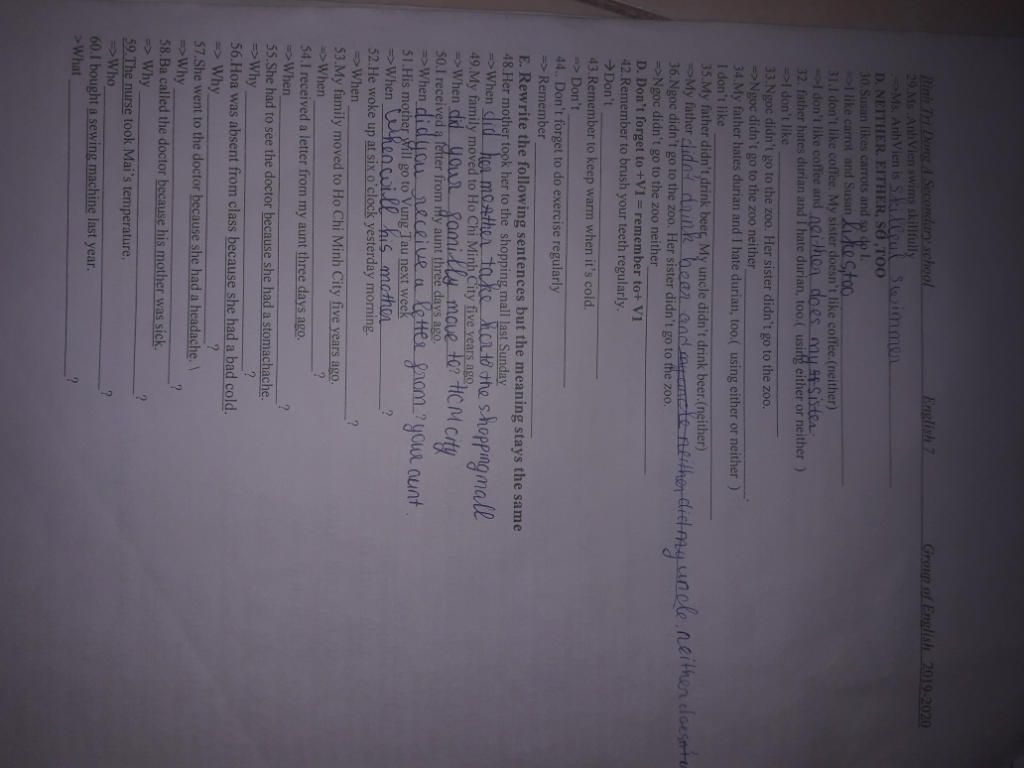 Binh Tri Dong A Secondary school English 7 Group of English 2019-2020
29.Ms. AnhVien swims skillfully
=>Ms. AnhVien is skillful swimmer
D. NEITHER, EITHER, SO, TOO
30.Susan likes carrots and so do I.
=>I like carrot and Susan likes too
31.I don't like coffee. My sister doesn't like coffee.(neither)
=>I don't like coffee and neither does my sister.
32.I father hates durian and I hate durian, too.( using either or neither )
=>I don't like
33.Ngoc didn't go to the zoo. Her sister didn't go to the zoo.
=>Ngoc didn't go to the zoo neither
34.My father hates durian and I hate durian, too.( using either or neither )
I don't like
35.My father didn't drink beer, My uncle didn't drink beer.(neither)
=>My father didn't drink bear and neither did my uncle neither
36.Ngoc didn't go to the zoo. Her sister didn't go to the zoo.
=>Ngoc didn't go to the zoo neither
D. Don't forget to +V1 = remember to+ V1
42.Remember to brush your teeth regularly.
→Don't
43.Remember to keep warm when it's cold.
=> Don't
44.. Don't forget to do exercise regularly
=> Remember
E. Rewrite the following sentences but the meaning stays the same
48.Her mother took her to the shopping mall last Sunday
=>When did her mother take her to the shopping mall
49.My family moved to Ho Chi Minh City five years ago.
=> When did your family move to? HCM city
50.I received a letter from my aunt three days ago.
=>When did you receive a letter from? your aunt.
51.His mother will go to Vung Tau next week
=>When When will his mother ?
52.He woke up at six o'clock yesterday morning.
=>When ?
53.My family moved to Ho Chi Minh City five years ago.
=>When ?
54.I received a letter from my aunt three days ago.
=>When ?
55.She had to see the doctor because she had a stomachache.
=>Why ?
56.Hoa was absent from class because she had a bad cold.
=> Why ?
57.She went to the doctor because she had a headache.\
=>Why ?
58.Ba called the doctor because his mother was sick.
=> Why ?
59.The nurse took Mai's temperature.
=>Who ?
60.I bought a sewing machine last year.
>What ?